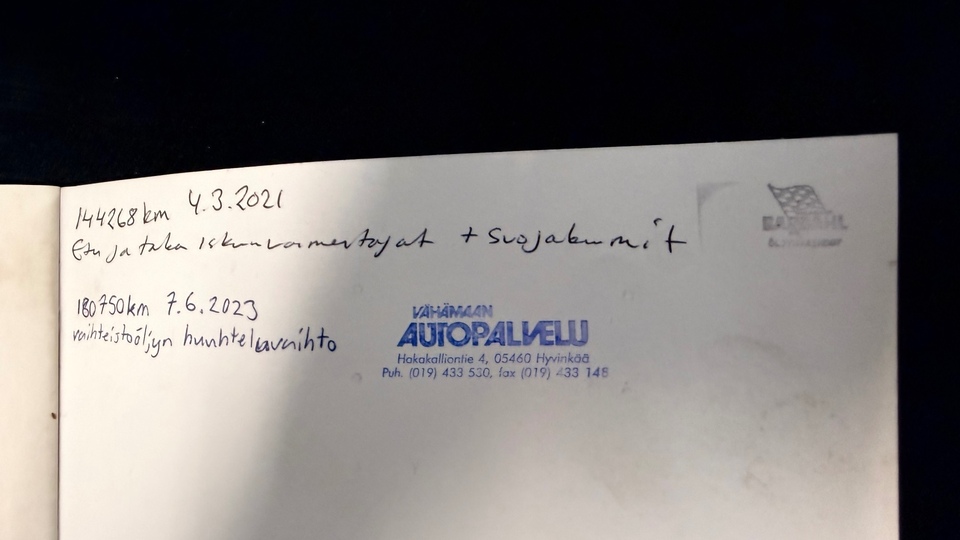 144268km 4.3.2021
Etu ja taka iskunvaimentajat + suojakumit
180750km 7.6.2023
vaihteistoöljyn huuhteluvaihto
VÄHÄMAAN
AUTOPALVELU
Hakakalliontie 4, 05460 Hyvinkää
Puh. (019) 433 530, fax (019) 433 148
BARDAHL